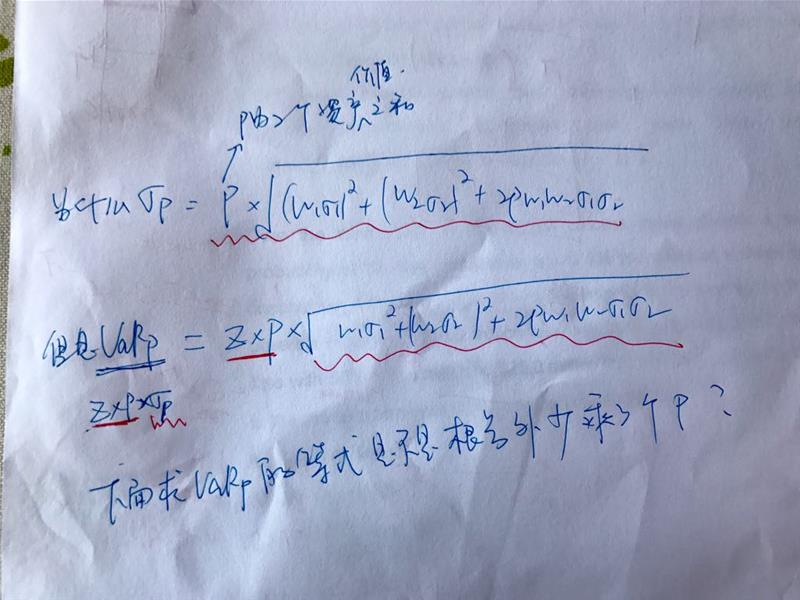 价值.
P为2个资产之和
σp = P × √(w₁σ₁)² + (w₂σ₂)² + 2ρw₁w₂σ₁σ₂
但是VaRp = Z×P×√w₁σ₁²+(w₂σ₂)²+2ρw₁w₂σ₁σ₂
Z×P×σp
下面求VaRp的等式是不是根号外少乘了个P？